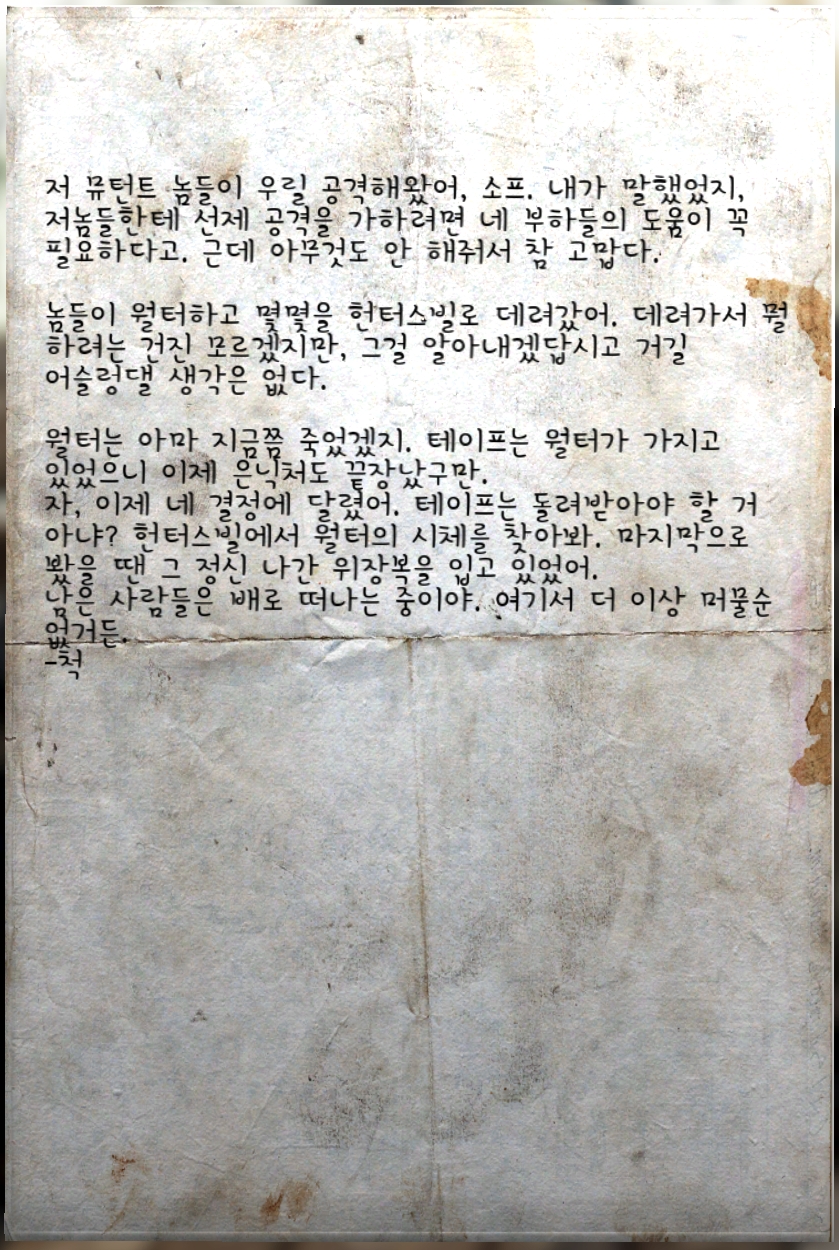 저 뮤턴트 놈들이 우릴 공격해왔어, 소프. 내가 말했었지,
저놈들한테 선제 공격을 가하려면 네 부하들의 도움이 꼭
필요하다고. 근데 아무것도 안 해줘서 참 고맙다.
놈들이 월터하고 몇몇을 헌터스빌로 데려갔어. 데려가서 뭘
하려는 건진 모르겠지만, 그걸 알아내겠답시고 거길
어슬렁댈 생각은 없다.
월터는 아마 지금쯤 죽었겠지. 테이프는 월터가 가지고
있었으니 이제 은닉처도 끝장났구만.
자, 이제 네 결정에 달렸어. 테이프는 돌려받아야 할 거
아냐? 헌터스빌에서 월터의 시체를 찾아봐. 마지막으로
봤을 땐 그 정신 나간 위장복을 입고 있었어.
남은 사람들은 배로 떠나는 중이야. 여기서 더 이상 머물순
없거든.
-척